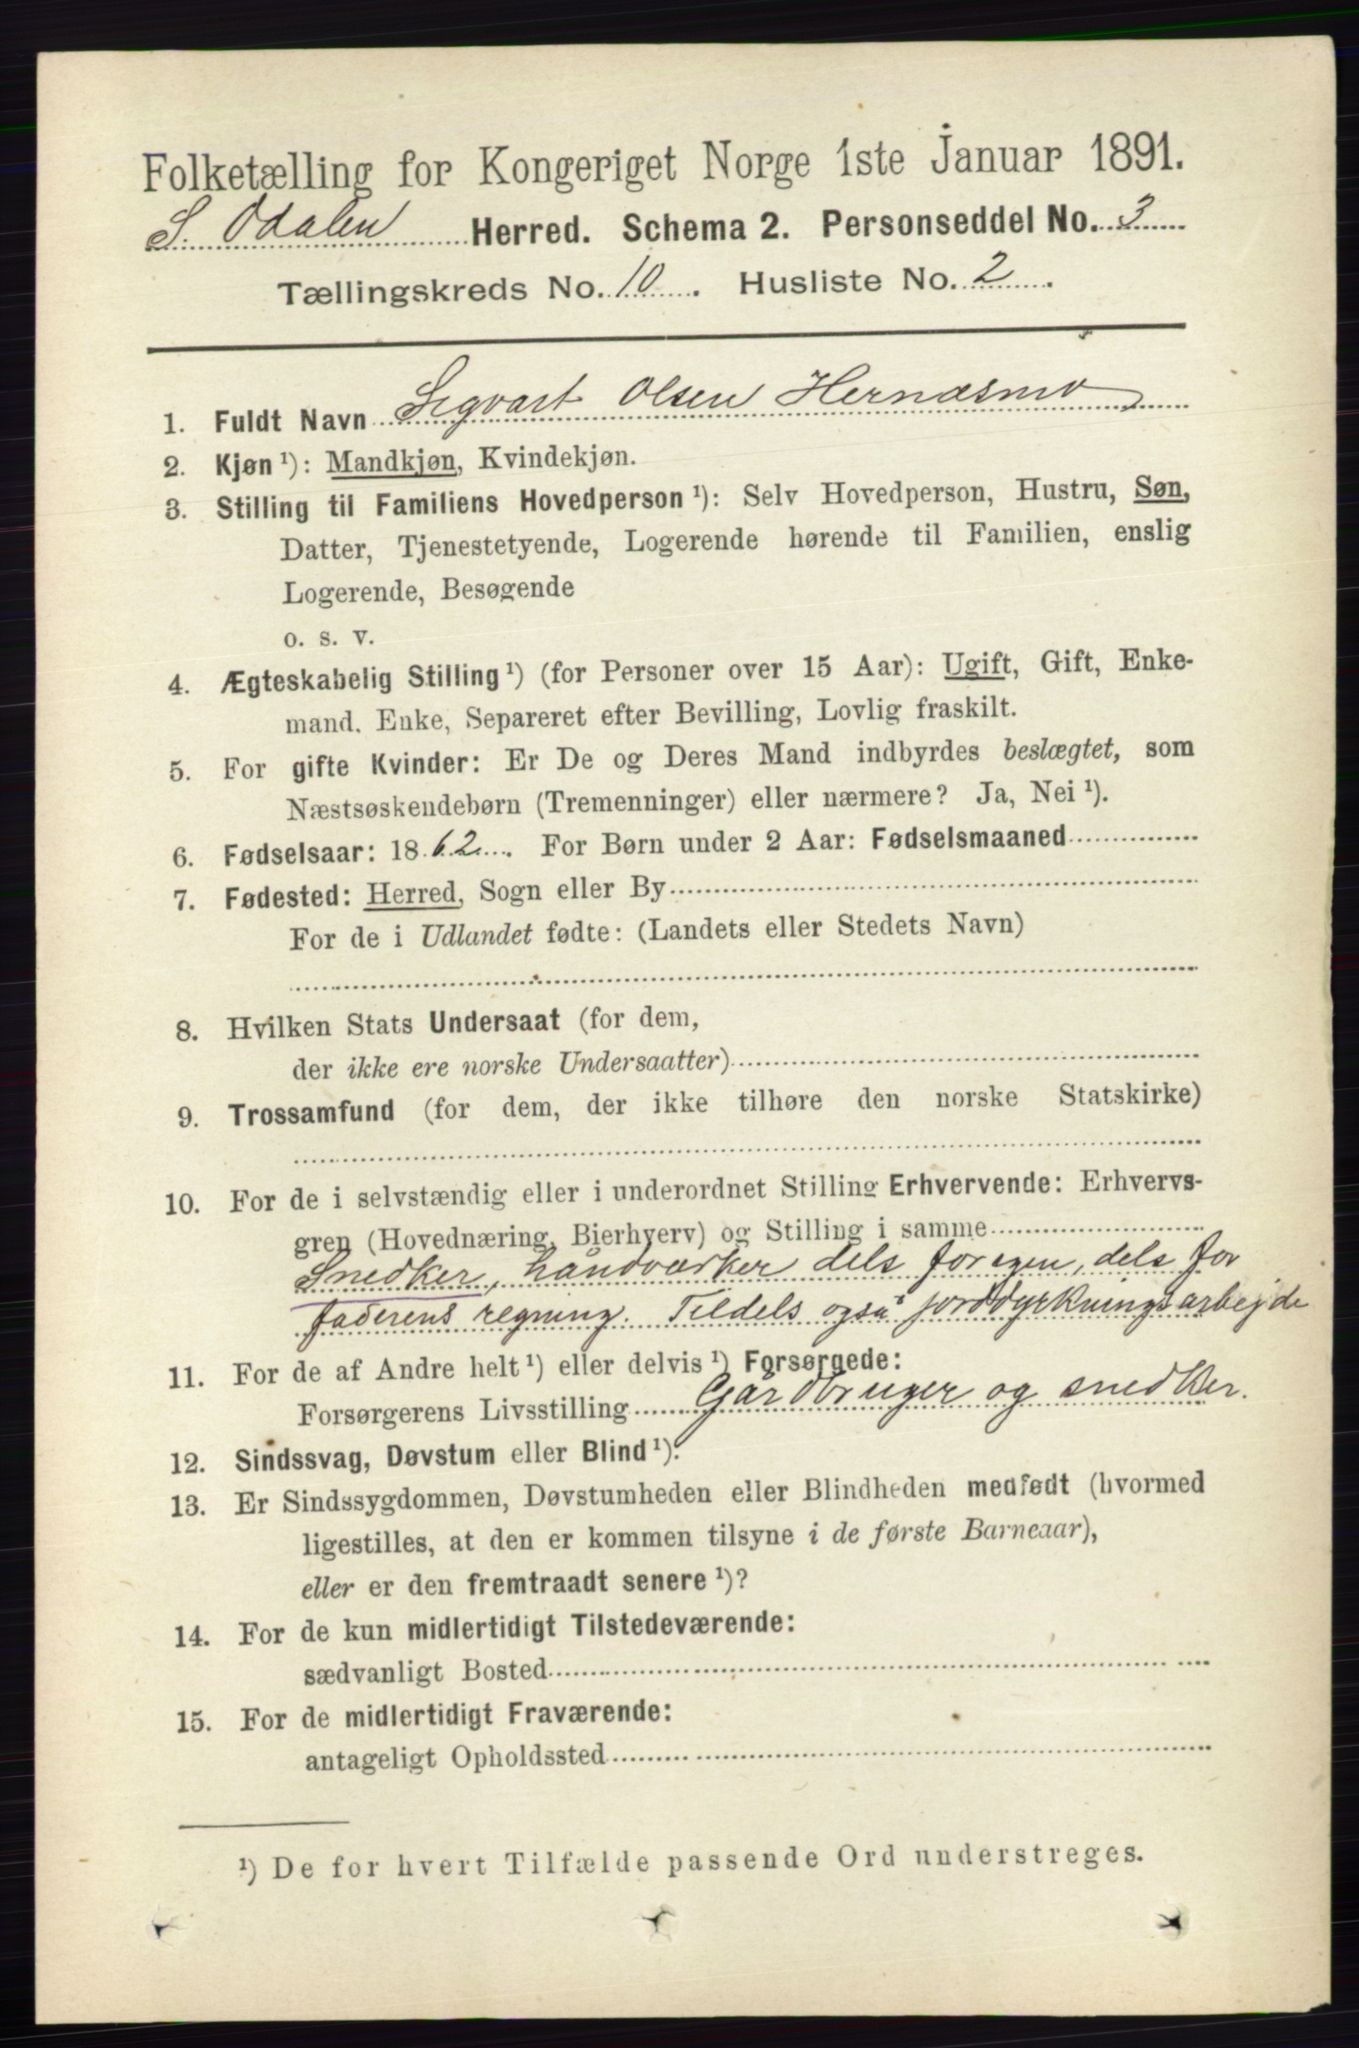 Folketælling for Kongeriget Norge 1ste Januar 1891.
S. Odalen Herred. Schema 2. Personseddel No. 3
Tællingskreds No. 10. Husliste No. 2.
1. Fuldt Navn Sigvart Olsen Hernæsmo
2. Kjøn ¹): Mandkjøn, Kvindekjøn.
3. Stilling til Familiens Hovedperson ¹): Selv Hovedperson, Hustru, Søn,
Datter, Tjenestetyende, Logerende hørende til Familien, enslig
Logerende, Besøgende
o. s. v.
4. Ægteskabelig Stilling ¹) (for Personer over 15 Aar): Ugift, Gift, Enke-
mand, Enke, Separeret efter Bevilling, Lovlig fraskilt.
5. For gifte Kvinder: Er De og Deres Mand indbyrdes beslægtet, som
Næstsøskendebørn (Tremenninger) eller nærmere? Ja, Nei ¹).
6. Fødselsaar: 1862. For Børn under 2 Aar: Fødselsmaaned
7. Fødested: Herred, Sogn eller By
For de i Udlandet fødte: (Landets eller Stedets Navn)
8. Hvilken Stats Undersaat (for dem,
der ikke ere norske Undersaatter)
9. Trossamfund (for dem, der ikke tilhøre den norske Statskirke)
10. For de i selvstændig eller i underordnet Stilling Erhvervende: Erhvervs-
gren (Hovednæring, Bierhverv) og Stilling i samme
Snedker, håndværker dels for egen, dels for
faderens regning. Tildels også jorddyrkningsarbejde
11. For de af Andre helt ¹) eller delvis ¹) Forsørgede:
Forsørgerens Livsstilling Gårdbruger og snedker.
12. Sindssvag, Døvstum eller Blind ¹).
13. Er Sindssygdommen, Døvstumheden eller Blindheden medfødt (hvormed
ligestilles, at den er kommen tilsyne i de første Barneaar),
eller er den fremtraadt senere ¹)?
14. For de kun midlertidigt Tilstedeværende:
sædvanligt Bosted
15. For de midlertidigt Fraværende:
antageligt Opholdssted
¹) De for hvert Tilfælde passende Ord understreges.